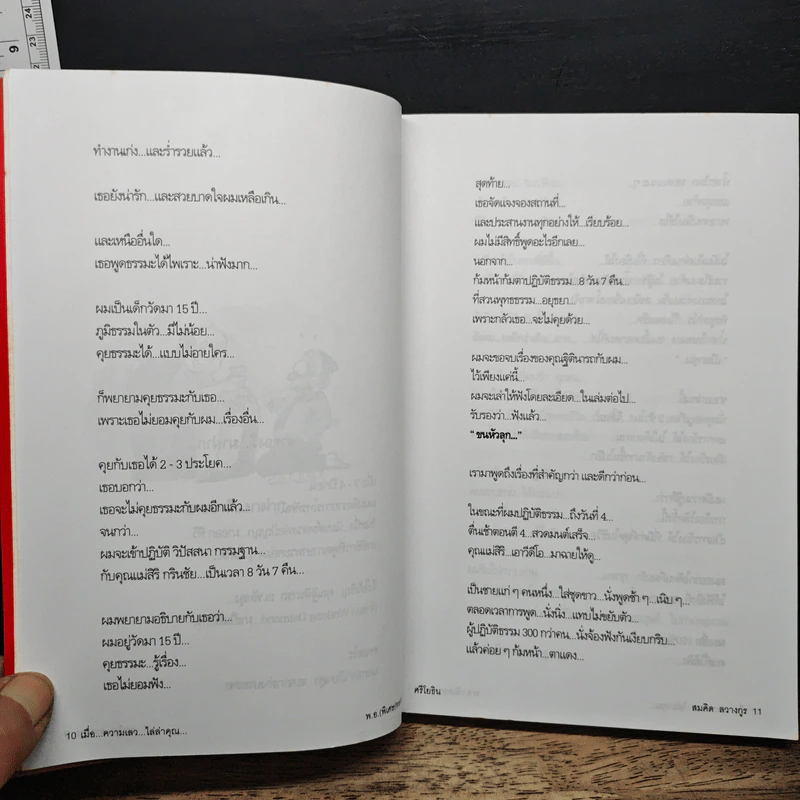 ทำงานเก่ง...และร่ำรวยแล้ว...
เธอยังน่ารัก...และสวยบาดใจผมเหลือเกิน...
และเหนืออื่นใด...
เธอพูดธรรมะได้ไพเราะ...น่าฟังมาก...
ผมเป็นเด็กวัดมา 15 ปี...
ภูมิธรรมในตัว...มีไม่น้อย...
คุยธรรมะได้...แบบไม่อายใคร...
ก็พยายามคุยธรรมะกับเธอ...
เพราะเธอไม่ยอมคุยกับผม...เรื่องอื่น...
คุยกับเธอได้ 2 - 3 ประโยค...
เธอบอกว่า...
เธอจะไม่คุยธรรมะกับผมอีกแล้ว...
จนกว่า...
ผมจะเข้าปฏิบัติ วิปัสสนา กรรมฐาน...
กับคุณแม่สิริ กรินชัย...เป็นเวลา 8 วัน 7 คืน...
ผมพยายามอธิบายกับเธอว่า...
ผมอยู่วัดมา 15 ปี...
คุยธรรมะ...รู้เรื่อง...
เธอไม่ยอมฟัง...
10 เมื่อ...ความเลว...ไล่ล่าคุณ...
พ.อ.(พิเศษ)
สุดท้าย...
เธอจัดแจงจองสถานที่...
และประสานงานทุกอย่างให้...เรียบร้อย...
ผมไม่มีสิทธิ์พูดอะไรอีกเลย...
นอกจาก...
ก้มหน้าก้มตาปฏิบัติธรรม...8 วัน 7 คืน...
ที่สวนพุทธธรรม...อยุธยา...
เพราะกลัวเธอ...จะไม่คุยด้วย...
ผมจะขอจบเรื่องของคุณฐิตินารถกับผม...
ไว้เพียงแค่นี้...
ผมจะเล่าให้ฟังโดยละเอียด...ในเล่มต่อไป...
รับรองว่า...ฟังแล้ว...
“ขนหัวลุก...”
เรามาพูดถึงเรื่องที่สำคัญกว่า และดีกว่าก่อน...
ในขณะที่ผมปฏิบัติธรรม...ถึงวันที่ 4...
ตื่นเช้าตอนตี 4...สวดมนต์เสร็จ...
คุณแม่สิริ...เอาวีดีโอ...มาฉายให้ดู...
เป็นชายแก่ ๆ คนหนึ่ง...ใส่ชุดขาว...นั่งพูดช้า ๆ...เนิบ ๆ...
ตลอดเวลาการพูด...นั่งนิ่ง...แทบไม่ขยับตัว...
ผู้ปฏิบัติธรรม 300 กว่าคน...นั่งจ้องฟังกันเงียบกริบ...
แล้วค่อย ๆ ก้มหน้า...ตาแดง...
ศรีโยธิน
สมคิด ลวางกูร 11